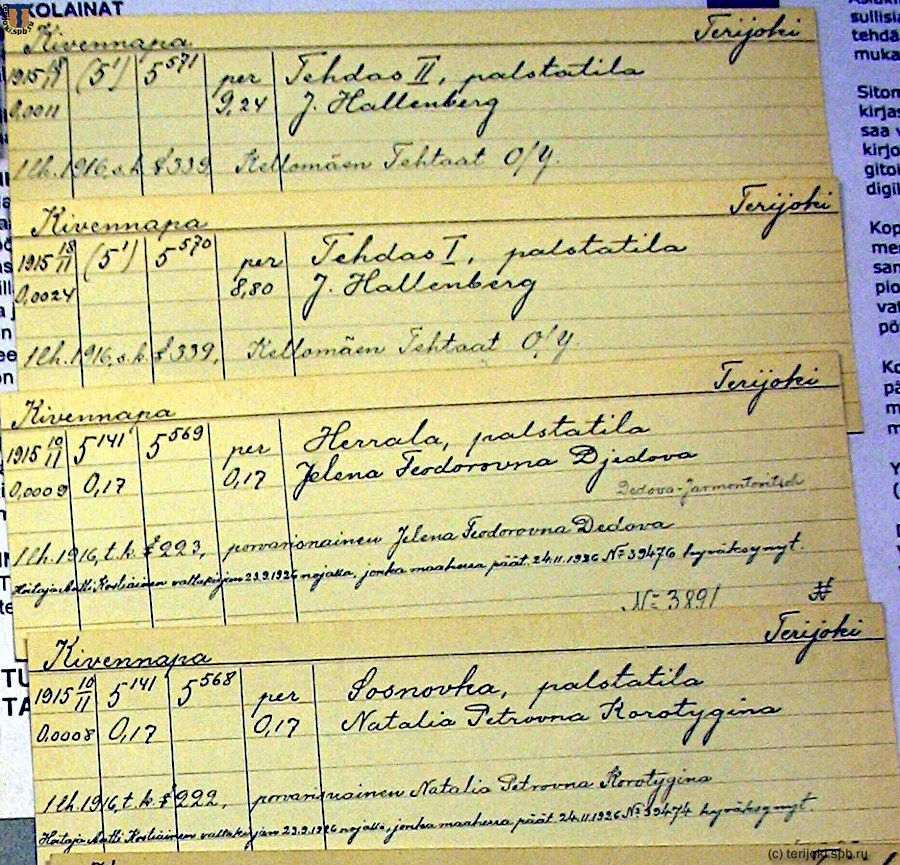 KOLAINAT
Kivennapa Terijoki
1915 18/11 (5¹) 5⁵⁷¹ per Tehdas II, palstatila
0,0011 9,24 J. Hallenberg
1 lh. 1916, s. k. § 339, Kellomäen Tehtaat O/Y.
Kivennapa Terijoki
1915 18/11 (5¹) 5⁵⁷⁰ per Tehdas I, palstatila
0,0024 8,80 J. Hallenberg
1 lh. 1916, s. k. § 339, Kellomäen Tehtaat O/Y.
Kivennapa Terijoki
1915 10/11 5¹⁴¹ 5⁵⁶⁹ per Herrala, palstatila
0,0009 0,17 0,17 Jelena Feodorovna Djedova
Dedova-Jarmontovitsch
1 lh. 1916, t. k. § 223, porvarisnainen Jelena Feodorovna Dedova
Hoitaja Antti Kostiainen valtakirjan 23.9.1926 nojalla, jonka maaherra päät. 24.11.1926 No 39476 hyväksynyt.
No 3891 #
Kivennapa Terijoki
1915 10/11 5¹⁴¹ 5⁵⁶⁸ per Sosnovka, palstatila
0,0008 0,17 0,17 Natalia Petrovna Korotygina
1 lh. 1916, t. k. § 222, porvarisnainen Natalia Petrovna Korotygina
Hoitaja Antti Kostiainen valtakirjan 23.9.1926 nojalla, jonka maaherra päät. 24.11.1926 No 39474 hyväksynyt.
sullisia
tehdä
muka
Sitom
kirjas
saa v
kirjo
gitoi
digil
Kop
me
san
pio
vat
pö
(c) terijoki.spb.ru